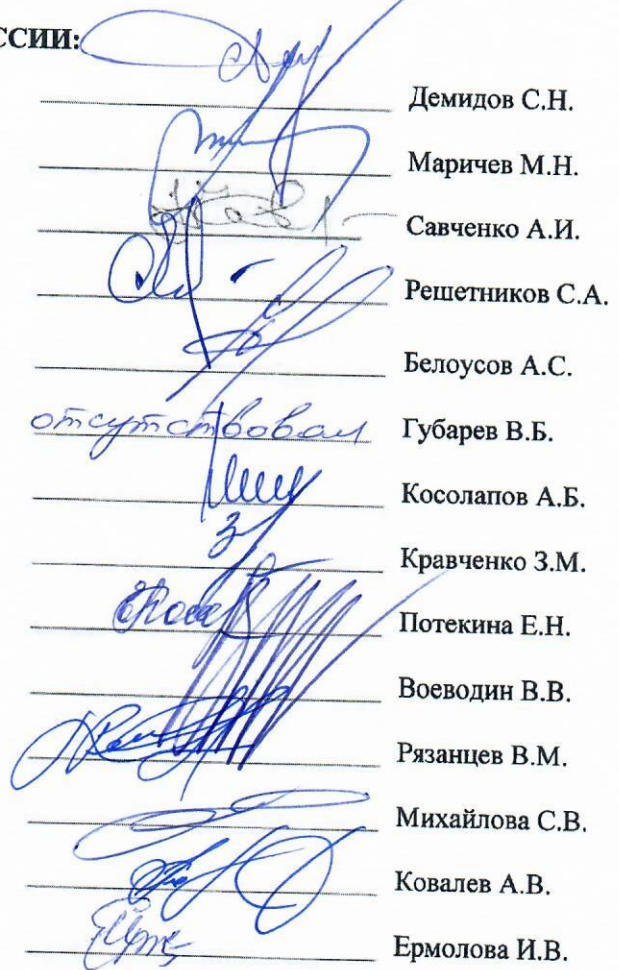 ССИИ:
Демидов С.Н.
Маричев М.Н.
Савченко А.И.
Решетников С.А.
Белоусов А.С.
отсутствовал Губарев В.Б.
Косолапов А.Б.
Кравченко З.М.
Потекина Е.Н.
Воеводин В.В.
Рязанцев В.М.
Михайлова С.В.
Ковалев А.В.
Ермолова И.В.